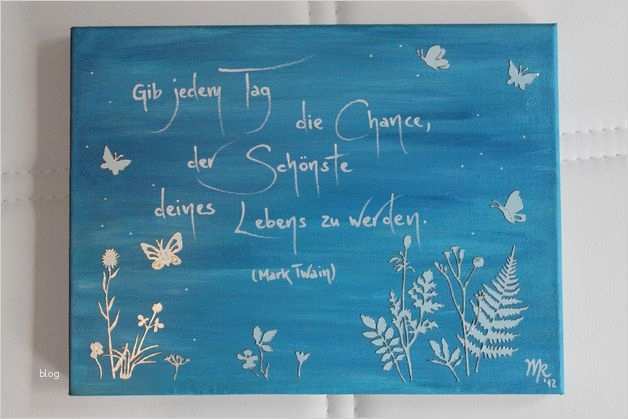 Gib jedem Tag
die Chance,
der Schönste
deines Lebens zu werden.
(Mark Twain)
MR
'12
blog